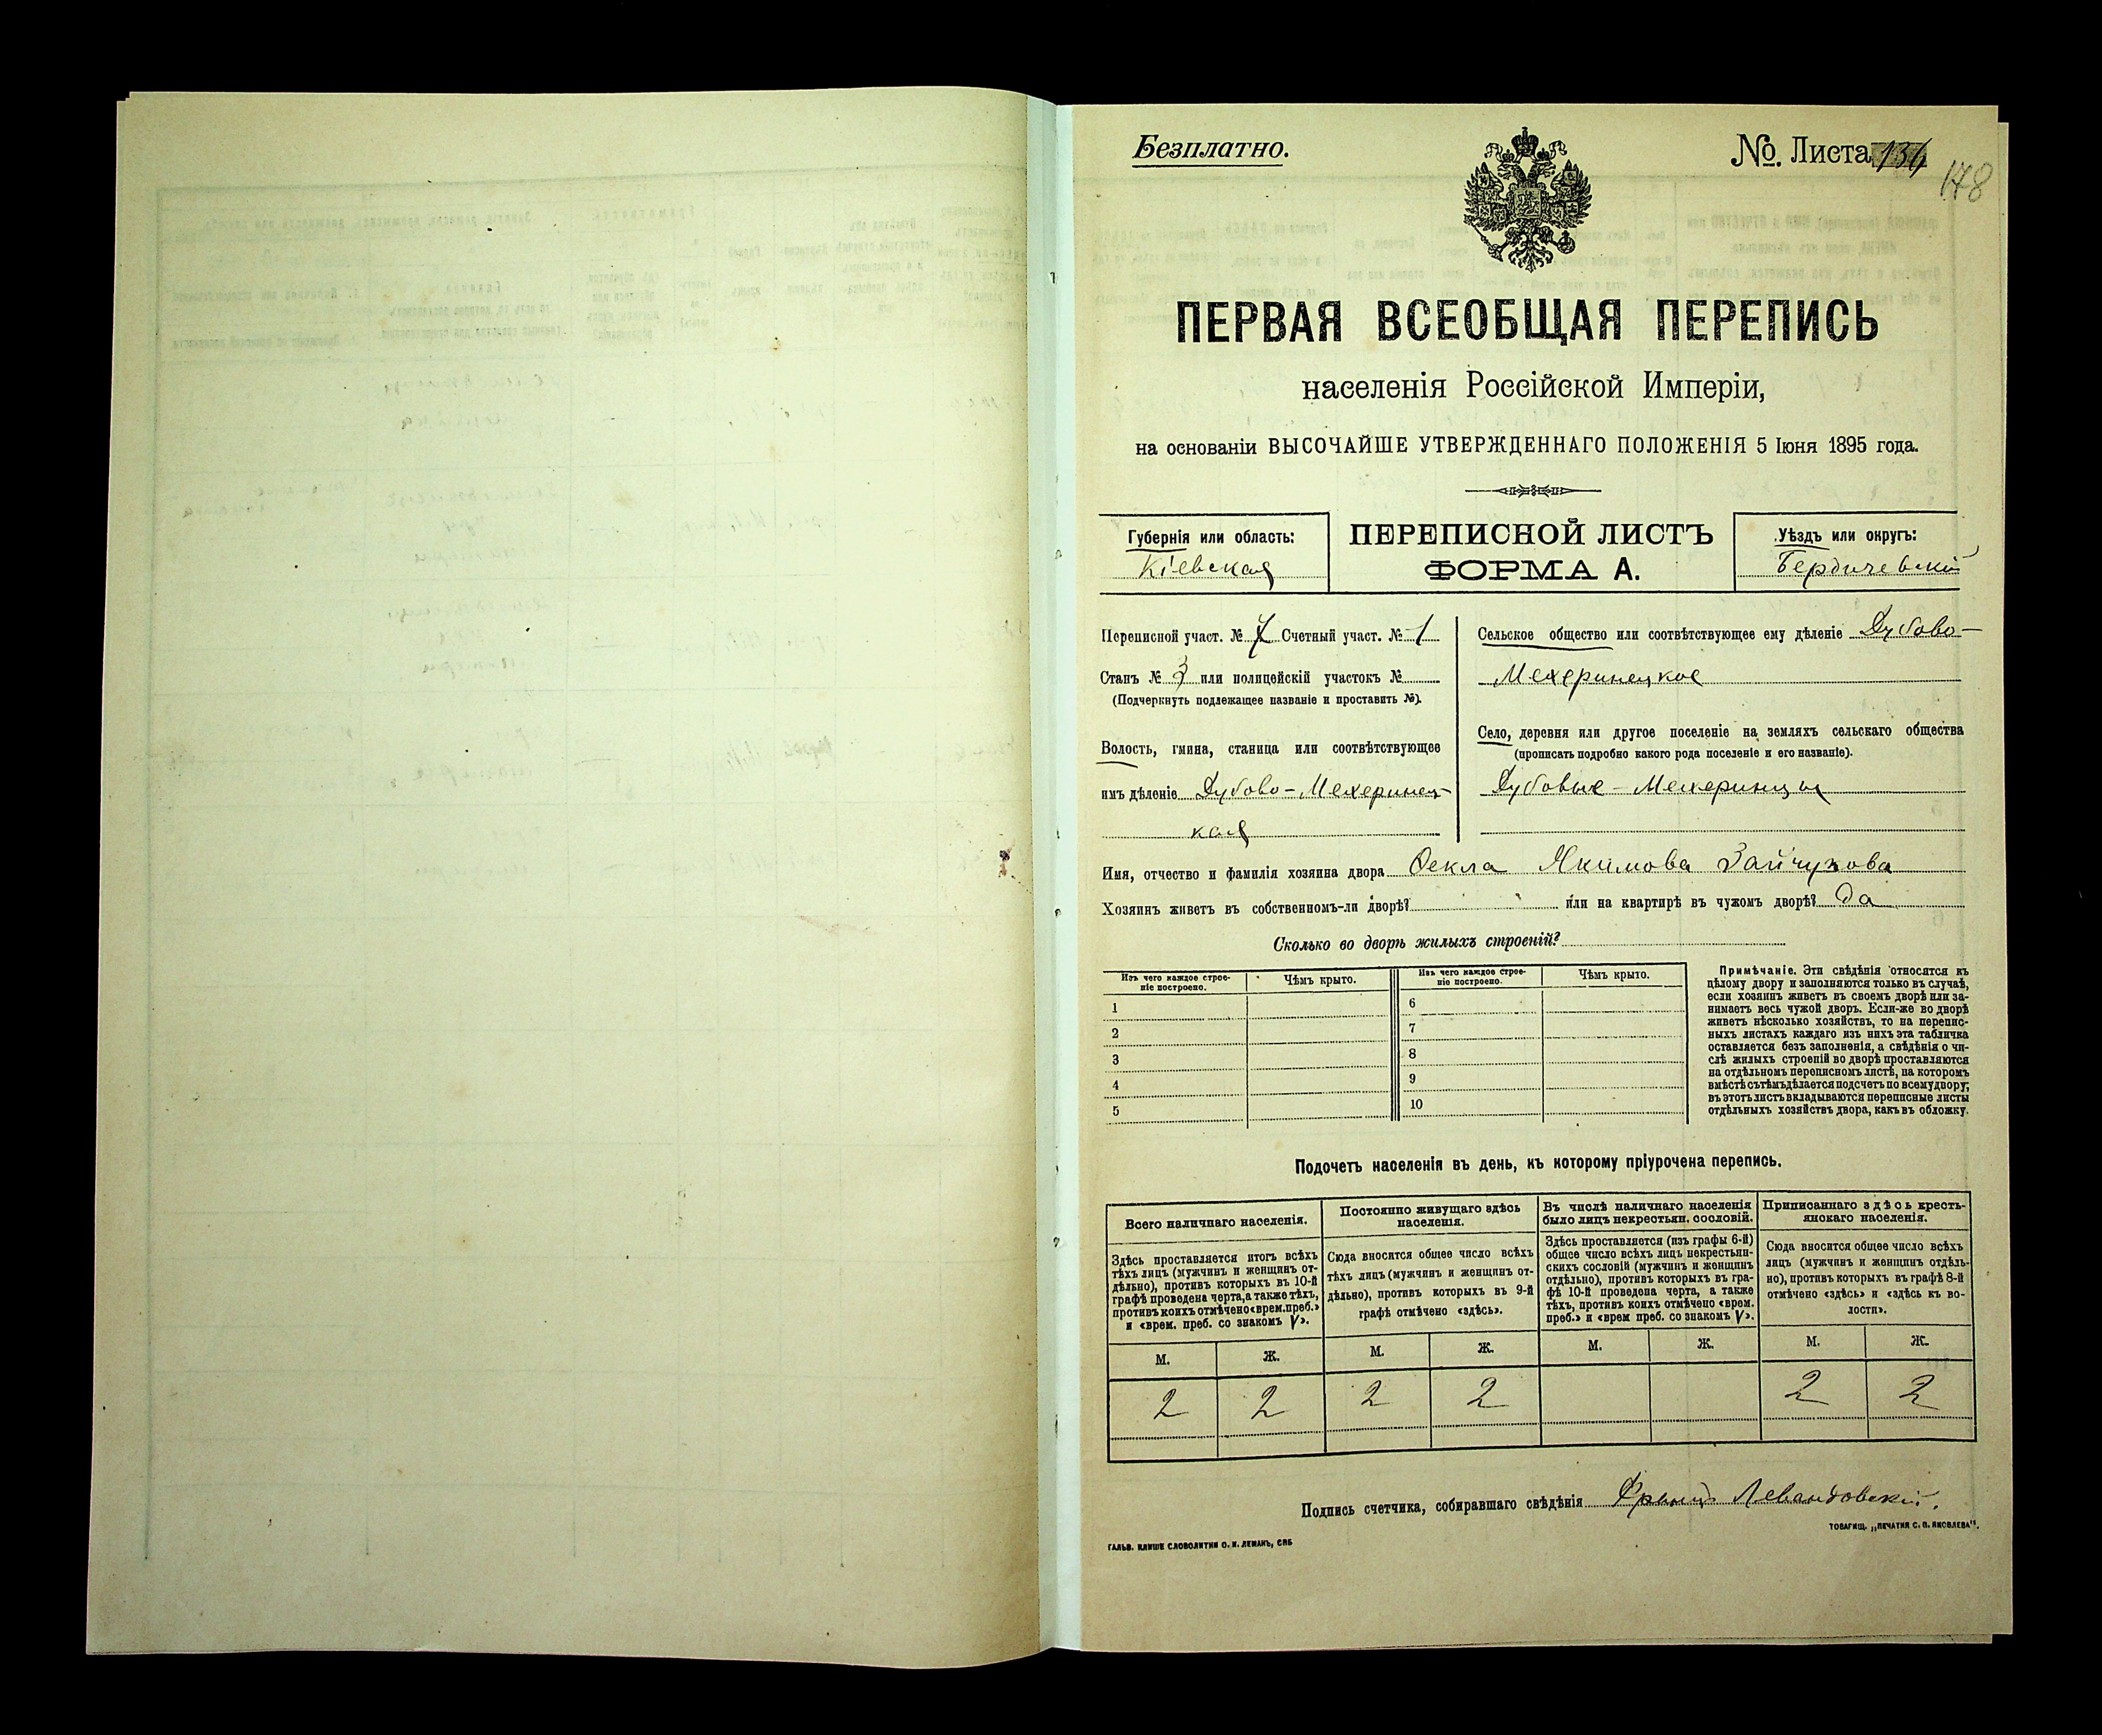 Безплатно.
№. Листа 134
148
ПЕРВАЯ ВСЕОБЩАЯ ПЕРЕПИСЬ
населенія Россійской Имперіи,
на основаніи ВЫСОЧАЙШЕ УТВЕРЖДЕННАГО ПОЛОЖЕНІЯ 5 Іюня 1895 года.
Губернія или область:
Кіевская
ПЕРЕПИСНОЙ ЛИСТЪ
ФОРМА А.
Уѣздъ или округъ:
Бердичевскій
Переписной участ. № 7 Счетный участ. № 1
Станъ № 3 или полицейскій участокъ №
(Подчеркнуть подлежащее названіе и проставить №).
Волость, гмина, станица или соотвѣтствующее
имъ дѣленіе Дубово-Мехеринец-
кая
Сельское общество или соотвѣтствующее ему дѣленіе Дубово-
Мехеринецкое
Село, деревня или другое поселеніе на земляхъ сельскаго общества
(прописать подробно какого рода поселеніе и его названіе).
Дубовые-Мехеринцы
Имя, отчество и фамилія хозяина двора Фекла Якимова Зайчукова
Хозяинъ живетъ въ собственномъ-ли дворѣ? или на квартирѣ въ чужомъ дворѣ? Да
Сколько во дворѣ жилыхъ строеній?
Изъ чего каждое строе-
ніе построено.
Чѣмъ крыто.
1
2
3
4
5
Изъ чего каждое строе-
ніе построено.
Чѣмъ крыто.
6
7
8
9
10
Примѣчаніе. Эти свѣдѣнія относятся къ
цѣлому двору и заполняются только въ случаѣ,
если хозяинъ живетъ въ своемъ дворѣ или за-
нимаетъ весь чужой дворъ. Если-же во дворѣ
живетъ нѣсколько хозяйствъ, то на перепис-
ныхъ листахъ каждаго изъ нихъ эта табличка
оставляется безъ заполненія, а свѣдѣнія о чи-
слѣ жилыхъ строеній во дворѣ проставляются
на отдѣльномъ переписномъ листѣ, на которомъ
вмѣстѣ съ тѣмъ дѣлается подсчетъ по всему двору;
въ этотъ листъ вкладываются переписные листы
отдѣльныхъ хозяйствъ двора, какъ въ обложку.
Подсчетъ населенія въ день, къ которому пріурочена перепись.
Всего наличнаго населенія.
Здѣсь проставляется итогъ всѣхъ
тѣхъ лицъ (мужчинъ и женщинъ от-
дѣльно), противъ которыхъ въ 10-й
графѣ проведена черта, а также тѣхъ,
противъ коихъ отмѣчено «врем. преб.»
и «врем. преб. со знакомъ V».
М.
Ж.
2
2
Постоянно живущаго здѣсь
населенія.
Сюда вносится общее число всѣхъ
тѣхъ лицъ (мужчинъ и женщинъ от-
дѣльно), противъ которыхъ въ 9-й
графѣ отмѣчено «здѣсь».
М.
Ж.
2
2
Въ числѣ наличнаго населенія
было лицъ некрестьян. сословій.
Здѣсь проставляется (изъ графы 6-й)
общее число всѣхъ лицъ некрестьян-
скихъ сословій (мужчинъ и женщинъ
отдѣльно), противъ которыхъ въ гра-
фѣ 10-й проведена черта, а также
тѣхъ, противъ коихъ отмѣчено «врем.
преб.» и «врем преб. со знакомъ V».
М.
Ж.
Приписаннаго здѣсь кресть-
янскаго населенія.
Сюда вносится общее число всѣхъ
лицъ (мужчинъ и женщинъ отдѣль-
но), противъ которыхъ въ графѣ 8-й
отмѣчено «здѣсь» и «здѣсь къ во-
лости».
М.
Ж.
2
2
Подпись счетчика, собиравшаго свѣдѣнія Францъ Левандовскій.
ТОВАРИЩ. „ПЕЧАТНЯ С. П. ЯКОВЛЕВА".
ГАЛЬВ. КЛИШЕ СЛОВОЛИТНИ О. И. ЛЕМАНЪ, СПБ